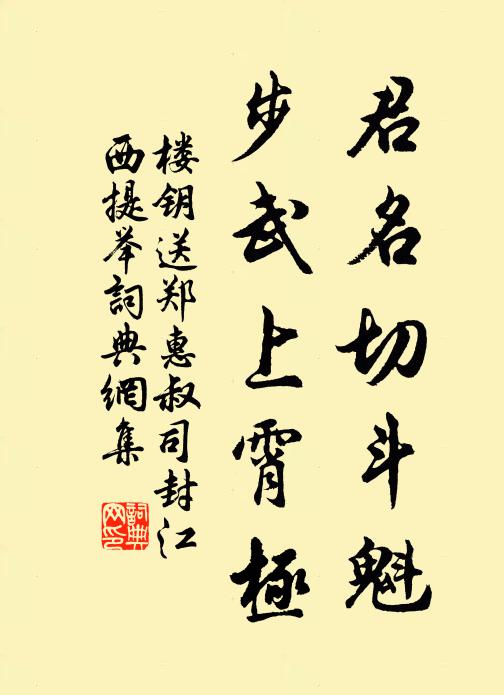 君名切斗魁
步武上霄極
楼钥送郑惠叔司封江
西提举詞典網集
詞典
网印